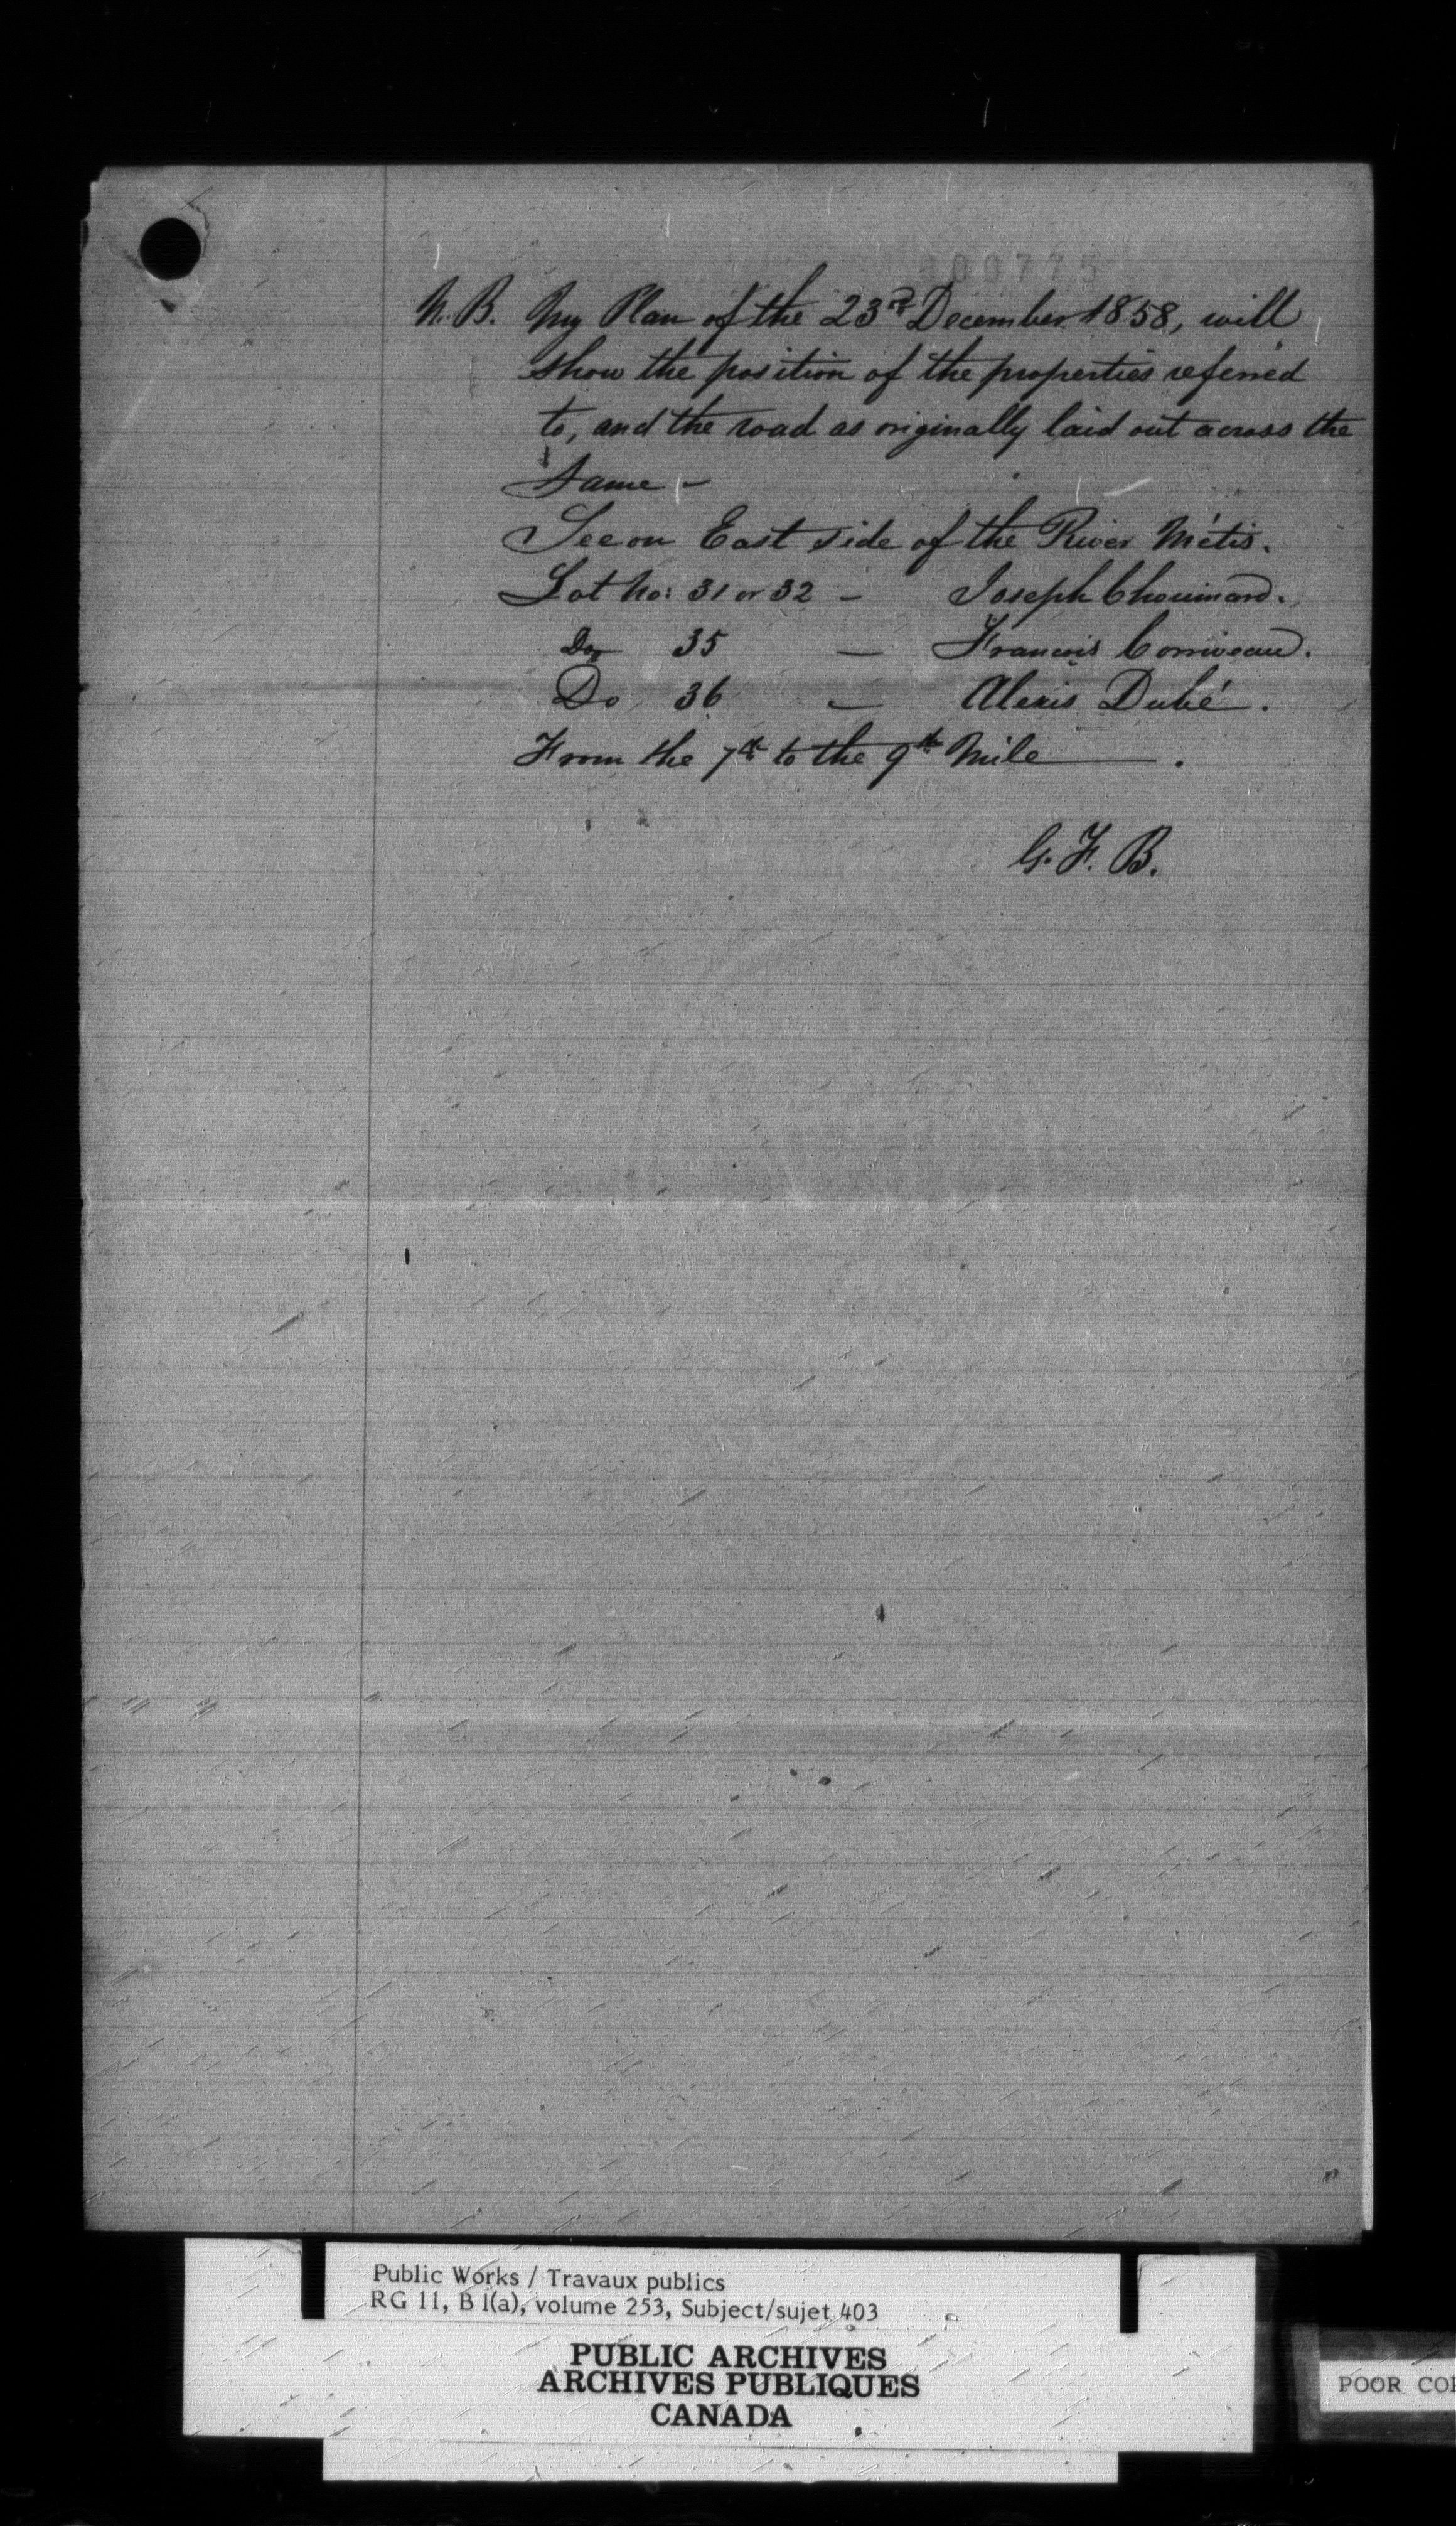 000775
N.B. My Plan of the 23rd December 1858, will
show the position of the properties referred
to, and the road as originally laid out across the
same –
See on East side of the River Métis.
Lot No: 31 or 32 – Joseph Chouinard.
Do 35 – Francois Corriveau.
Do 36 – Alexis Dubé.
From the 7th to the 9th Mile ——.
G. F. B.
Public Works / Travaux publics
RG 11, B 1(a), volume 253, Subject/sujet 403
PUBLIC ARCHIVES
ARCHIVES PUBLIQUES
CANADA
POOR